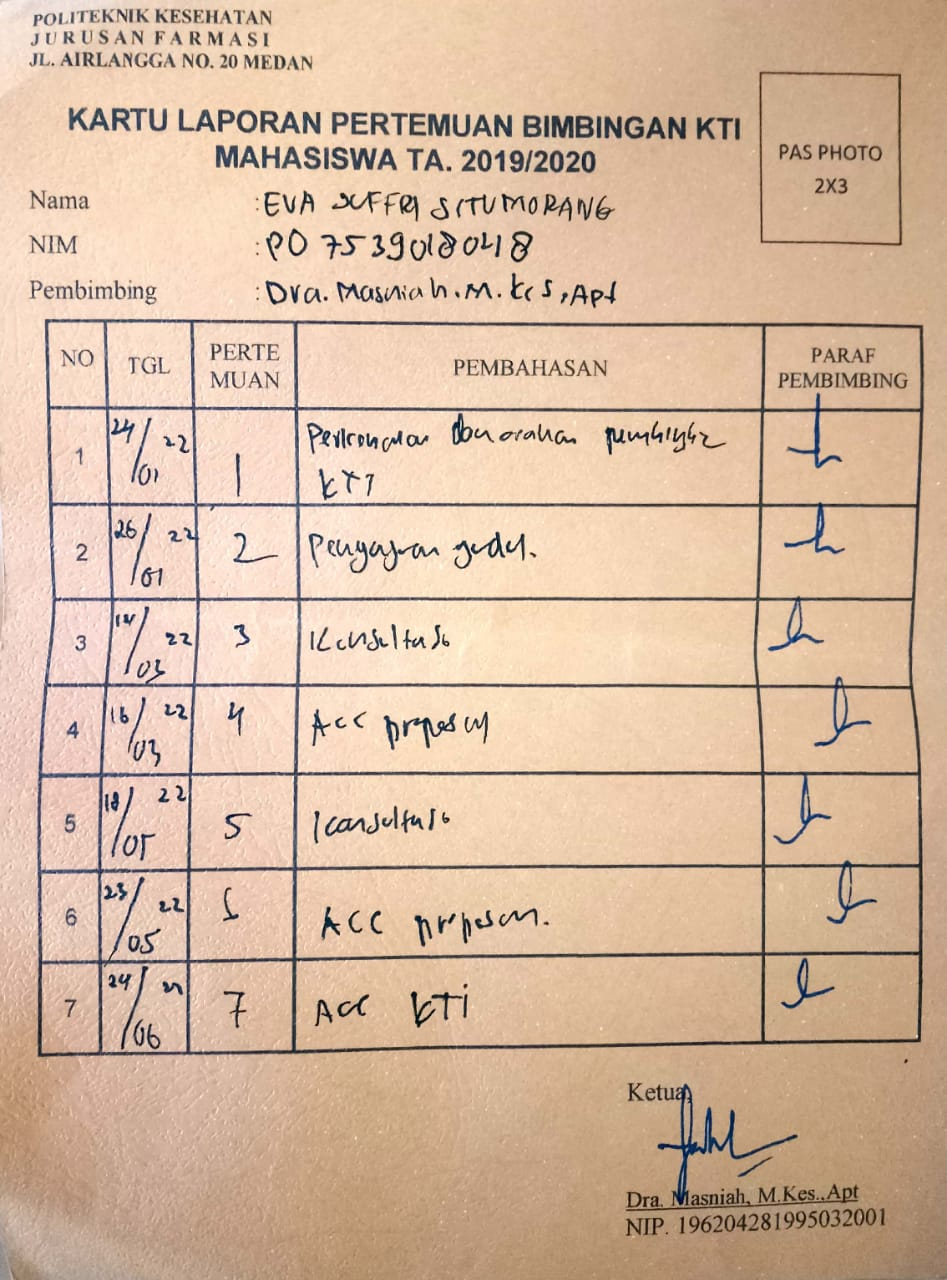 POLITEKNIK KESEHATAN
JURUSAN FARMASI
JL. AIRLANGGA NO. 20 MEDAN
KARTU LAPORAN PERTEMUAN BIMBINGAN KTI
MAHASISWA TA. 2019/2020
PAS PHOTO
2X3
Nama : EVA SITUMORANG
NIM : PO 7539018048
Pembimbing : Dra. Masniah. M. Kes, Apt
NO TGL PERTE MUAN PEMBAHASAN PARAF PEMBIMBING
1 24/01 22 1 Perkenalan dan arahan
KTI
2 26/01 22 2
3 14/03 22 3 Konsultasi
4 16/03 22 4 ACC proposal
5 18/05 22 5 Konsultasi
6 23/05 22 ACC
7 24/06 7 ACC KTi
Ketua,
Dra. Masniah, M.Kes.,Apt
NIP. 196204281995032001